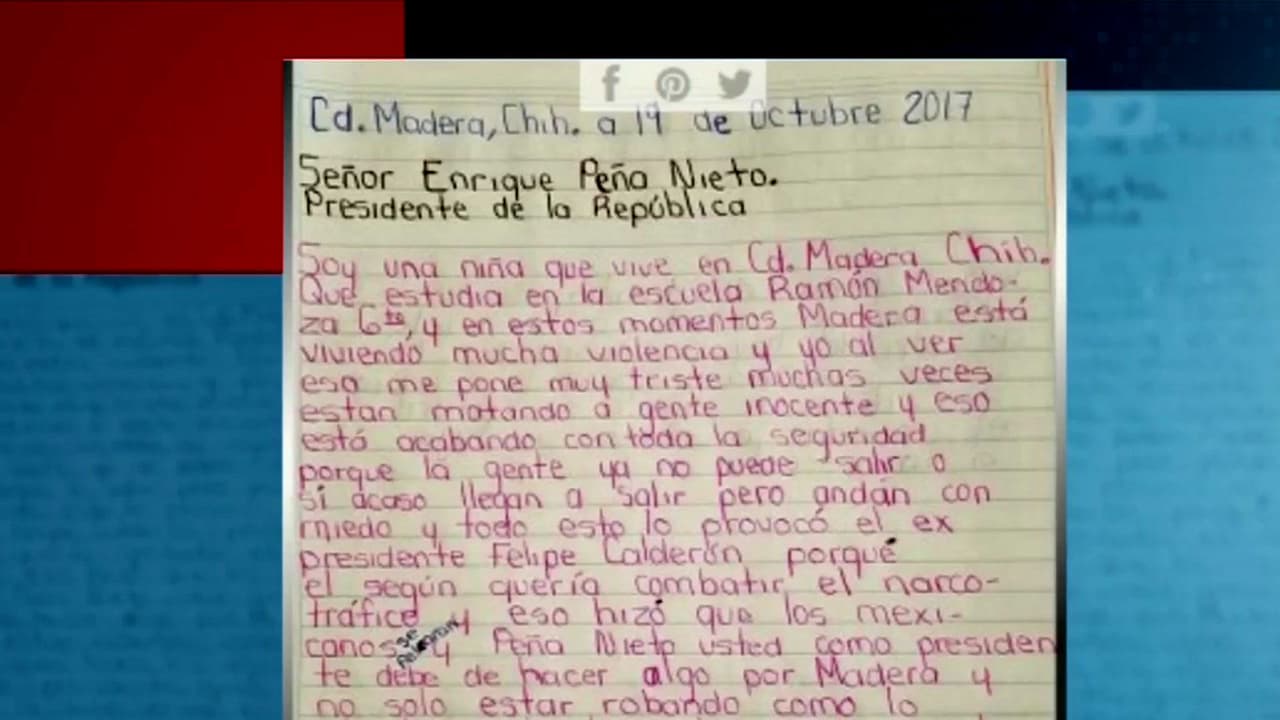 Cd. Madera, Chih. a 19 de Octubre 2017
Señor Enrique Peña Nieto.
Presidente de la República
Soy una niña que vive en Cd. Madera Chih.
Que estudia en la escuela Ramón Mendo-
za 6to, y en estos momentos Madera está
viviendo mucha violencia y yo al ver
eso me pone muy triste muchas veces
estan matando a gente inocente y eso
está acabando con toda la seguridad
porque la gente ya no puede salir o
si acaso llegan a salir pero andan con
miedo y todo esto lo provocó el ex
presidente Felipe Calderón porqué
el según quería combatir el narco-
tráfico y eso hizó que los mexi-
canos se y Peña Nieto usted como presiden
te debe de hacer algo por Madera y
no solo estar robando como lo